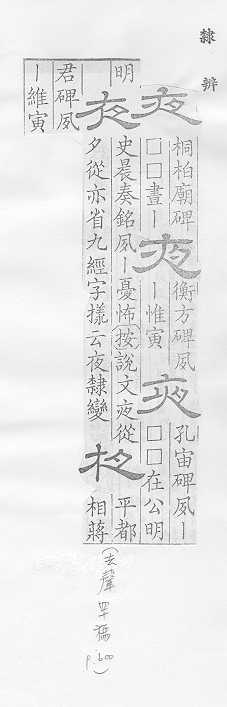 隸辨
夜
桐柏廟碑
□□晝丨
夜
衡方碑夙
丨惟寅
夜
孔宙碑夙丨
□□在公明
明
夜
史晨奏銘夙丨憂怖〔按〕說文夜從
夕從亦省九經字樣云夜隸變
夜
平都
相蔣
君碑夙
丨維寅
(去聲 四十禡 p.600)